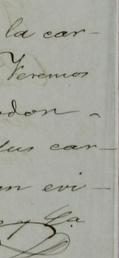 la car-
Veremos
don-
tus car-
un evi-